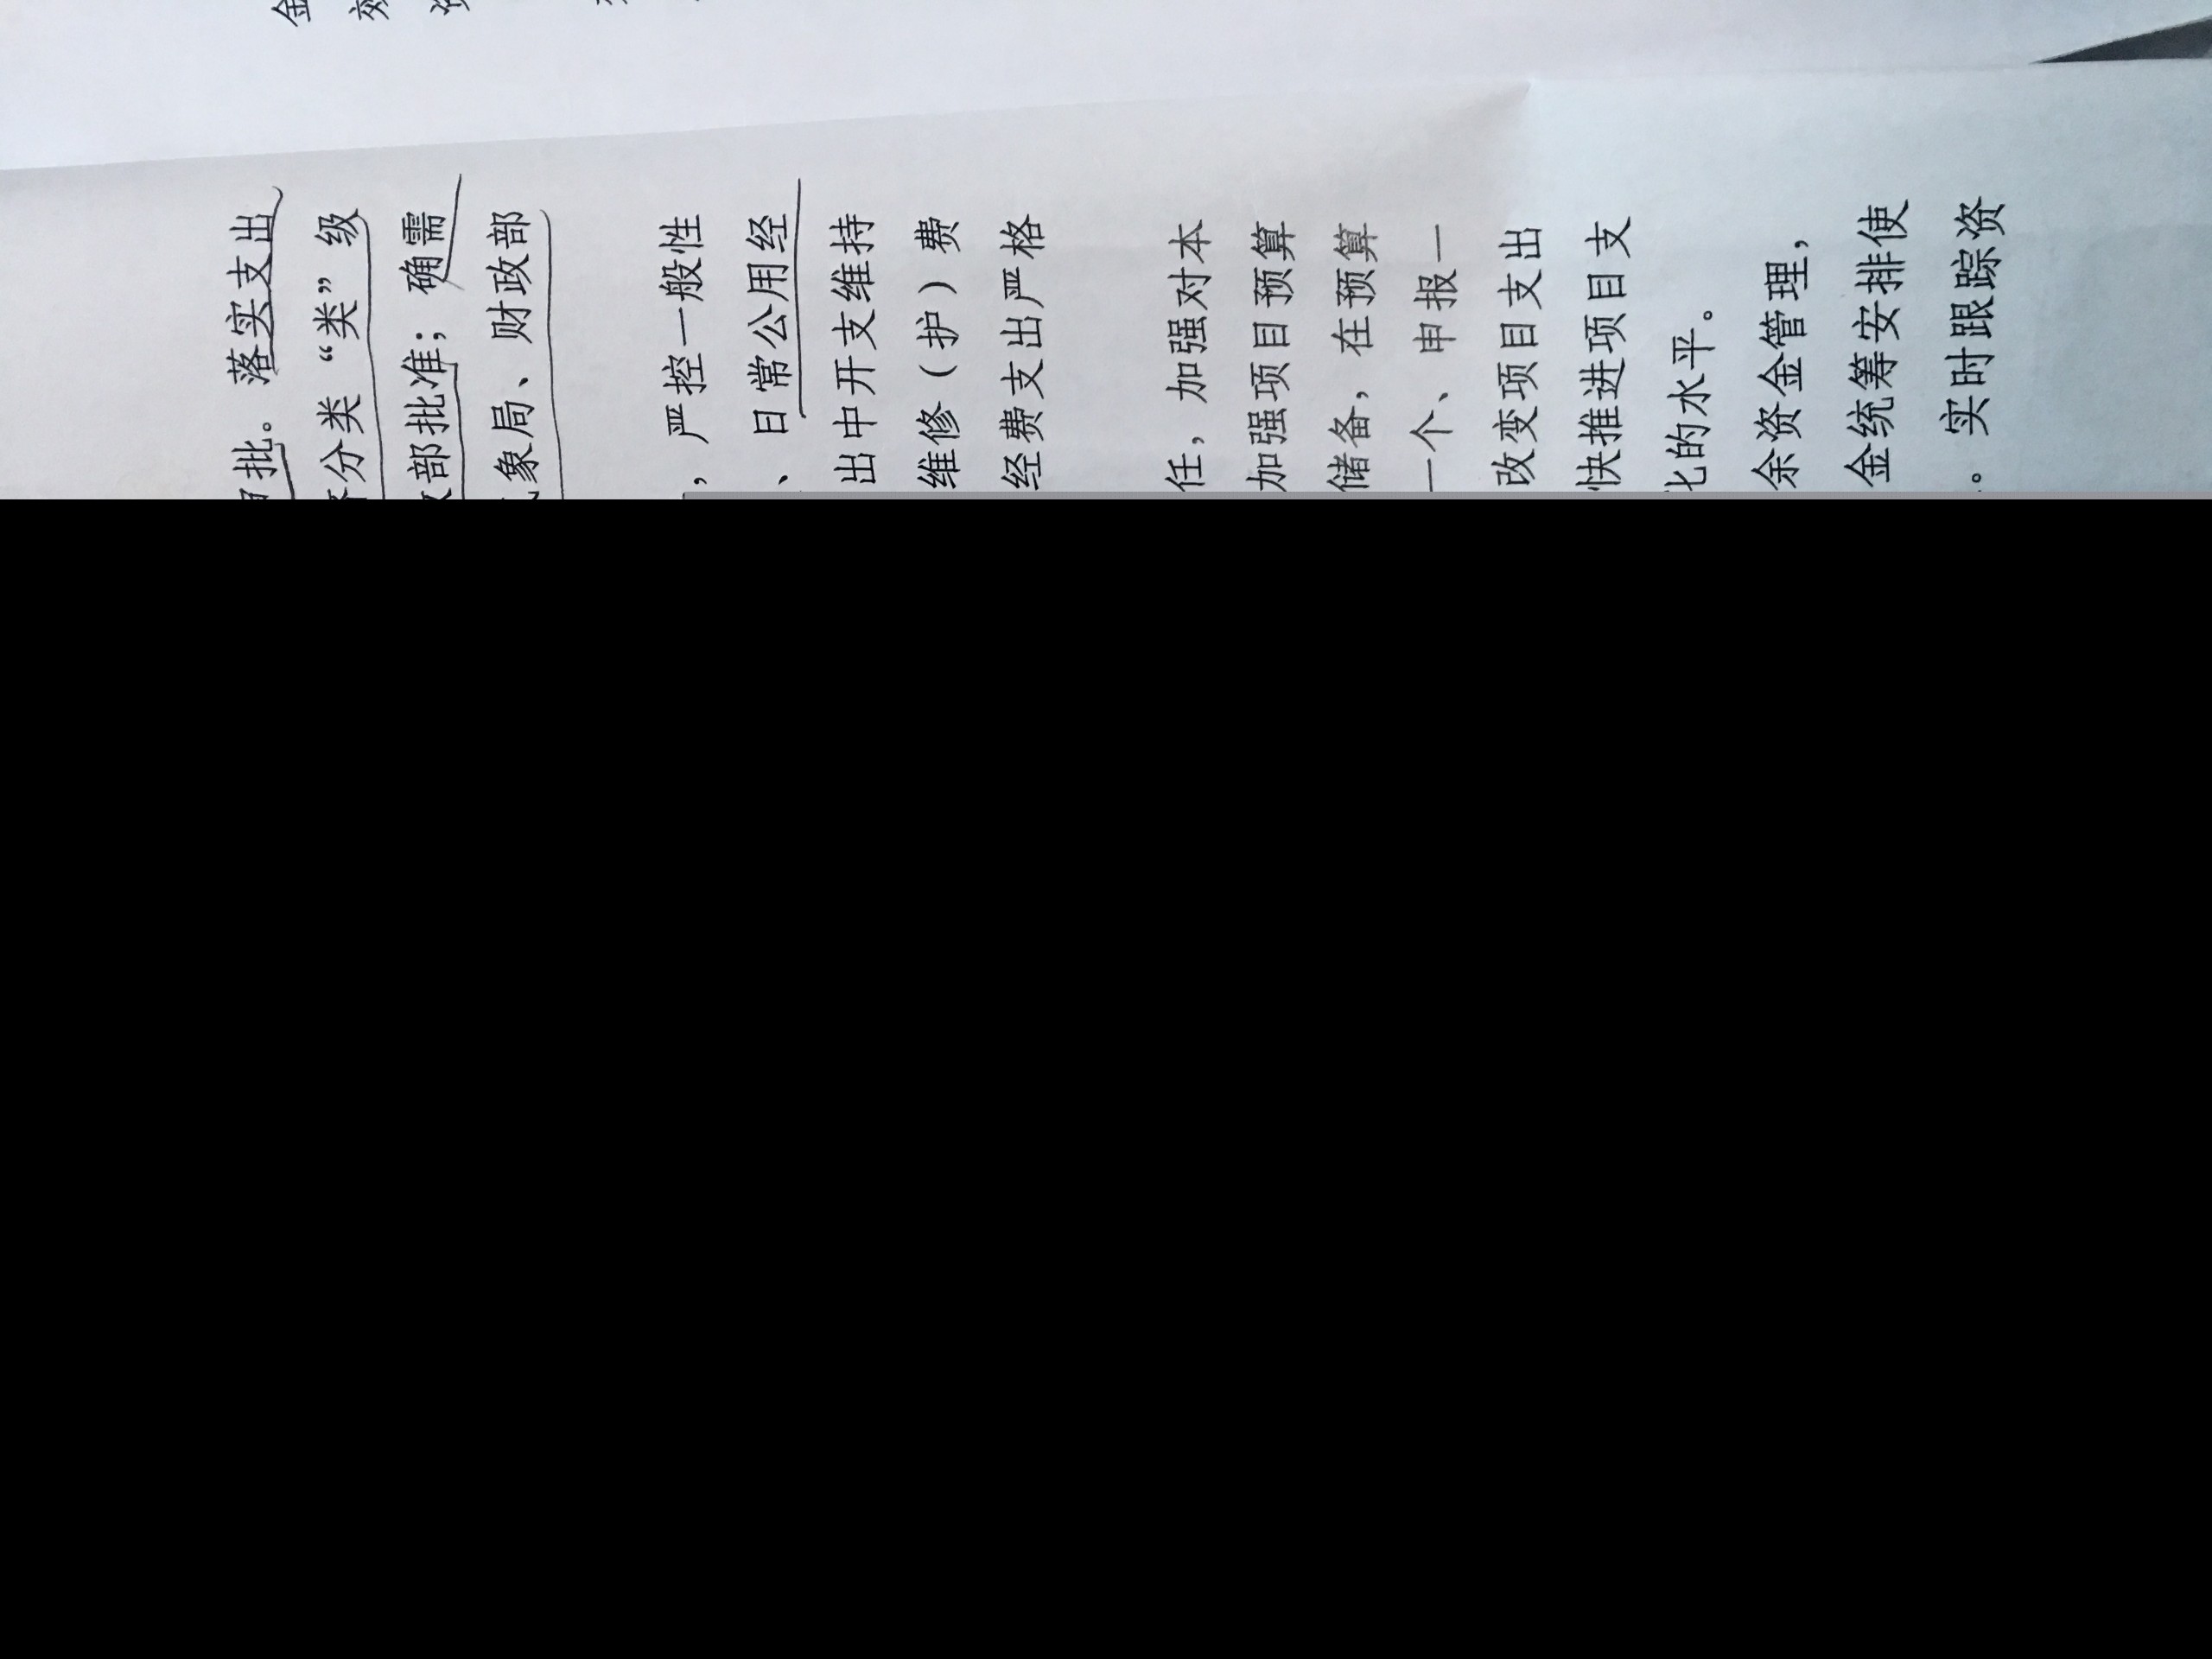 批。落实支出
分类“类”级
部批准；确需
象局、财政部
，严控一般性
、日常公用经
出中开支维持
维修（护）费
经费支出严格
任，加强对本
加强项目预算
储备，在预算
一个、申报一
改变项目支出
快推进项目支
的水平。
余资金管理，
金统筹安排使
。实时跟踪资